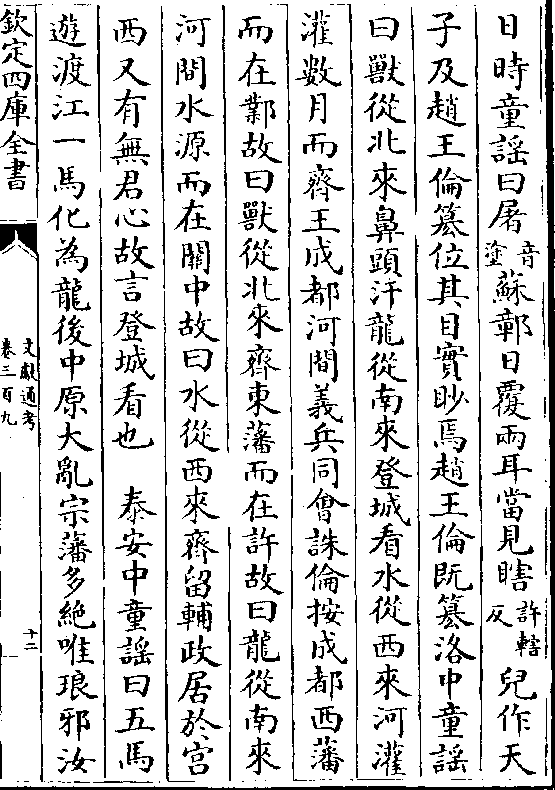 日時童謡曰屠音塗蘇鄣日覆兩耳當見瞎許轄反兒作天
子及趙王倫簒位其目實眇焉趙王倫既簒洛中童謡
曰獸從北來鼻頭汗龍從南來登城看水從西來河灌
灌數月而齊王成都河間義兵同會誅倫按成都西藩
而在鄴故曰獸從北來齊東藩而在許故曰龍從南來
河間水源而在關中故曰水從西來齊留輔政居於宫
西又有無君心故言登城看也　泰安中童謡曰五馬
遊渡江一馬化為龍後中原大亂宗藩多絶唯琅邪汝
欽定四庫全書
文獻通考
卷三百九
十二